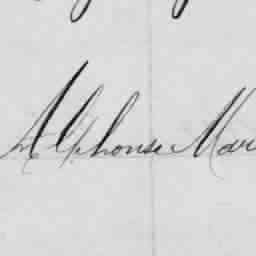 Alphonse Mar